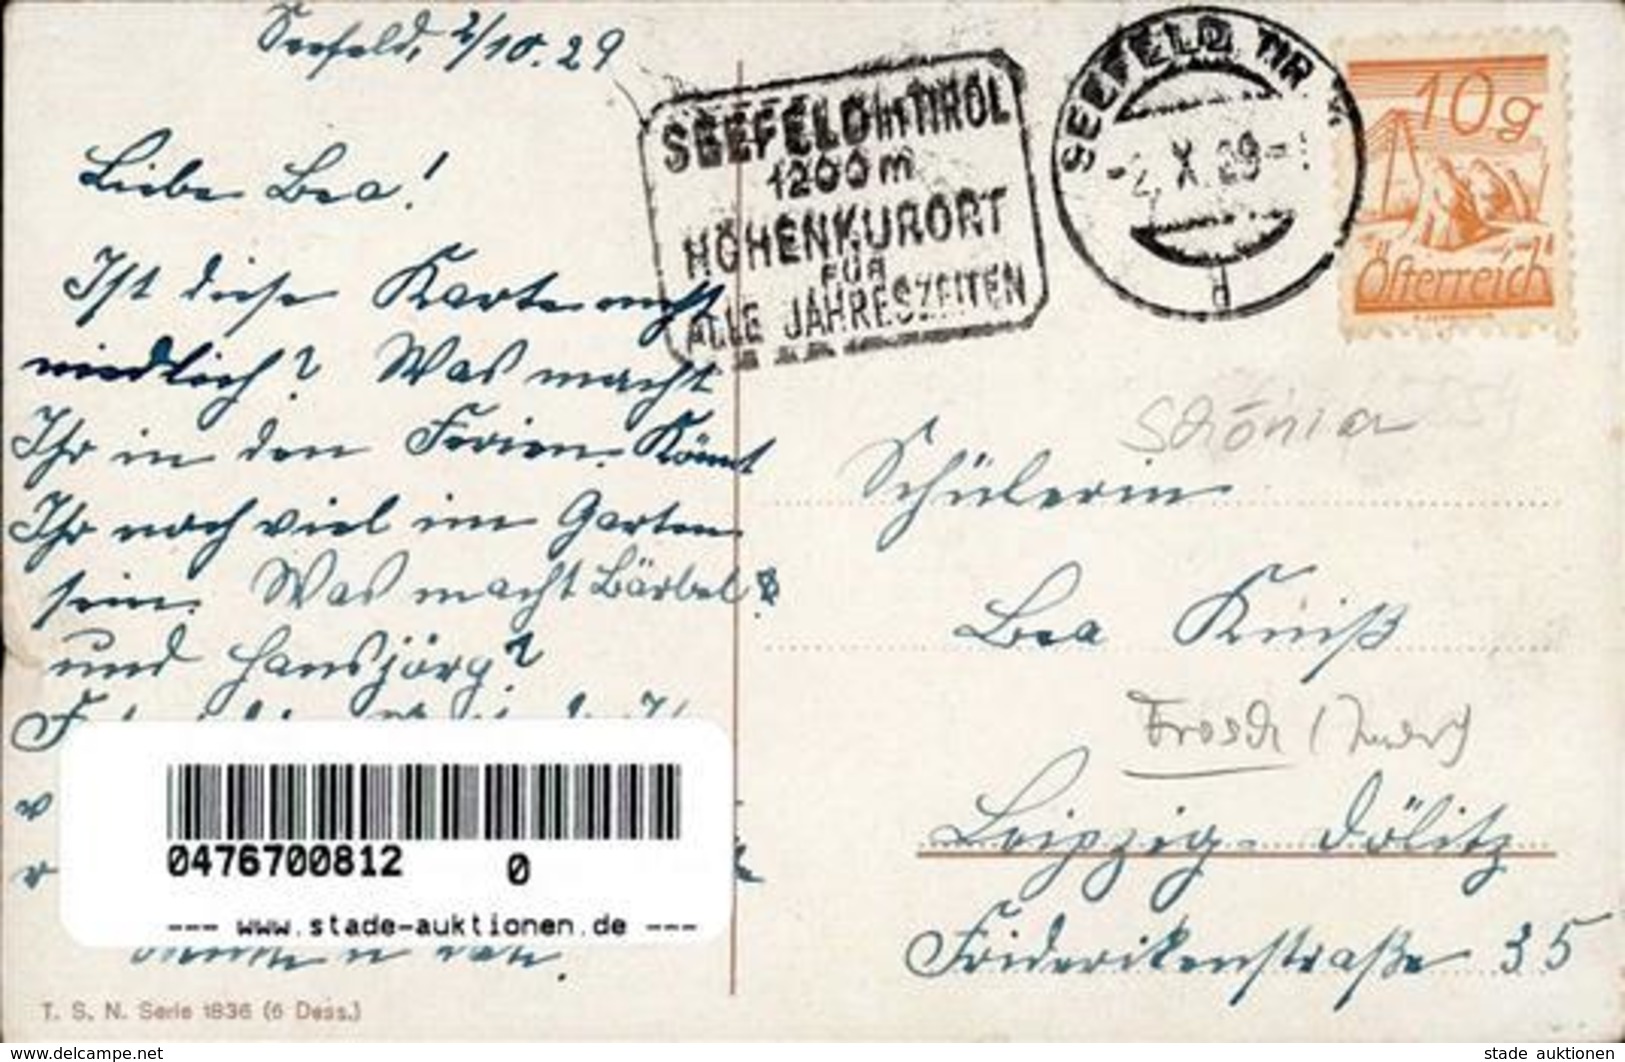 Seefeld, 2/10.29
SEEFELD in TIROL
1200 m
HÖHENKURORT
FÜR
ALLE JAHRESZEITEN
SEEFELD, TIR.
-2. X. 29
d
10g
Österreich
Liebe Bea!
Ist diese Karte nicht
niedlich? Was macht
Ihr in den Ferien. Könnt
Ihr noch viel im Garten
sein. Was macht Bärbel?
und Hansjörg?
Schülerin
Bea Kniß
Frosch
Leipzig-Dölitz
Friderikenstraße 35
0476700812 0
--- www.stade-auktionen.de ---
T. S. N. Serie 1836 (6 Dess.)
www.delcampe.net
stade auktionen